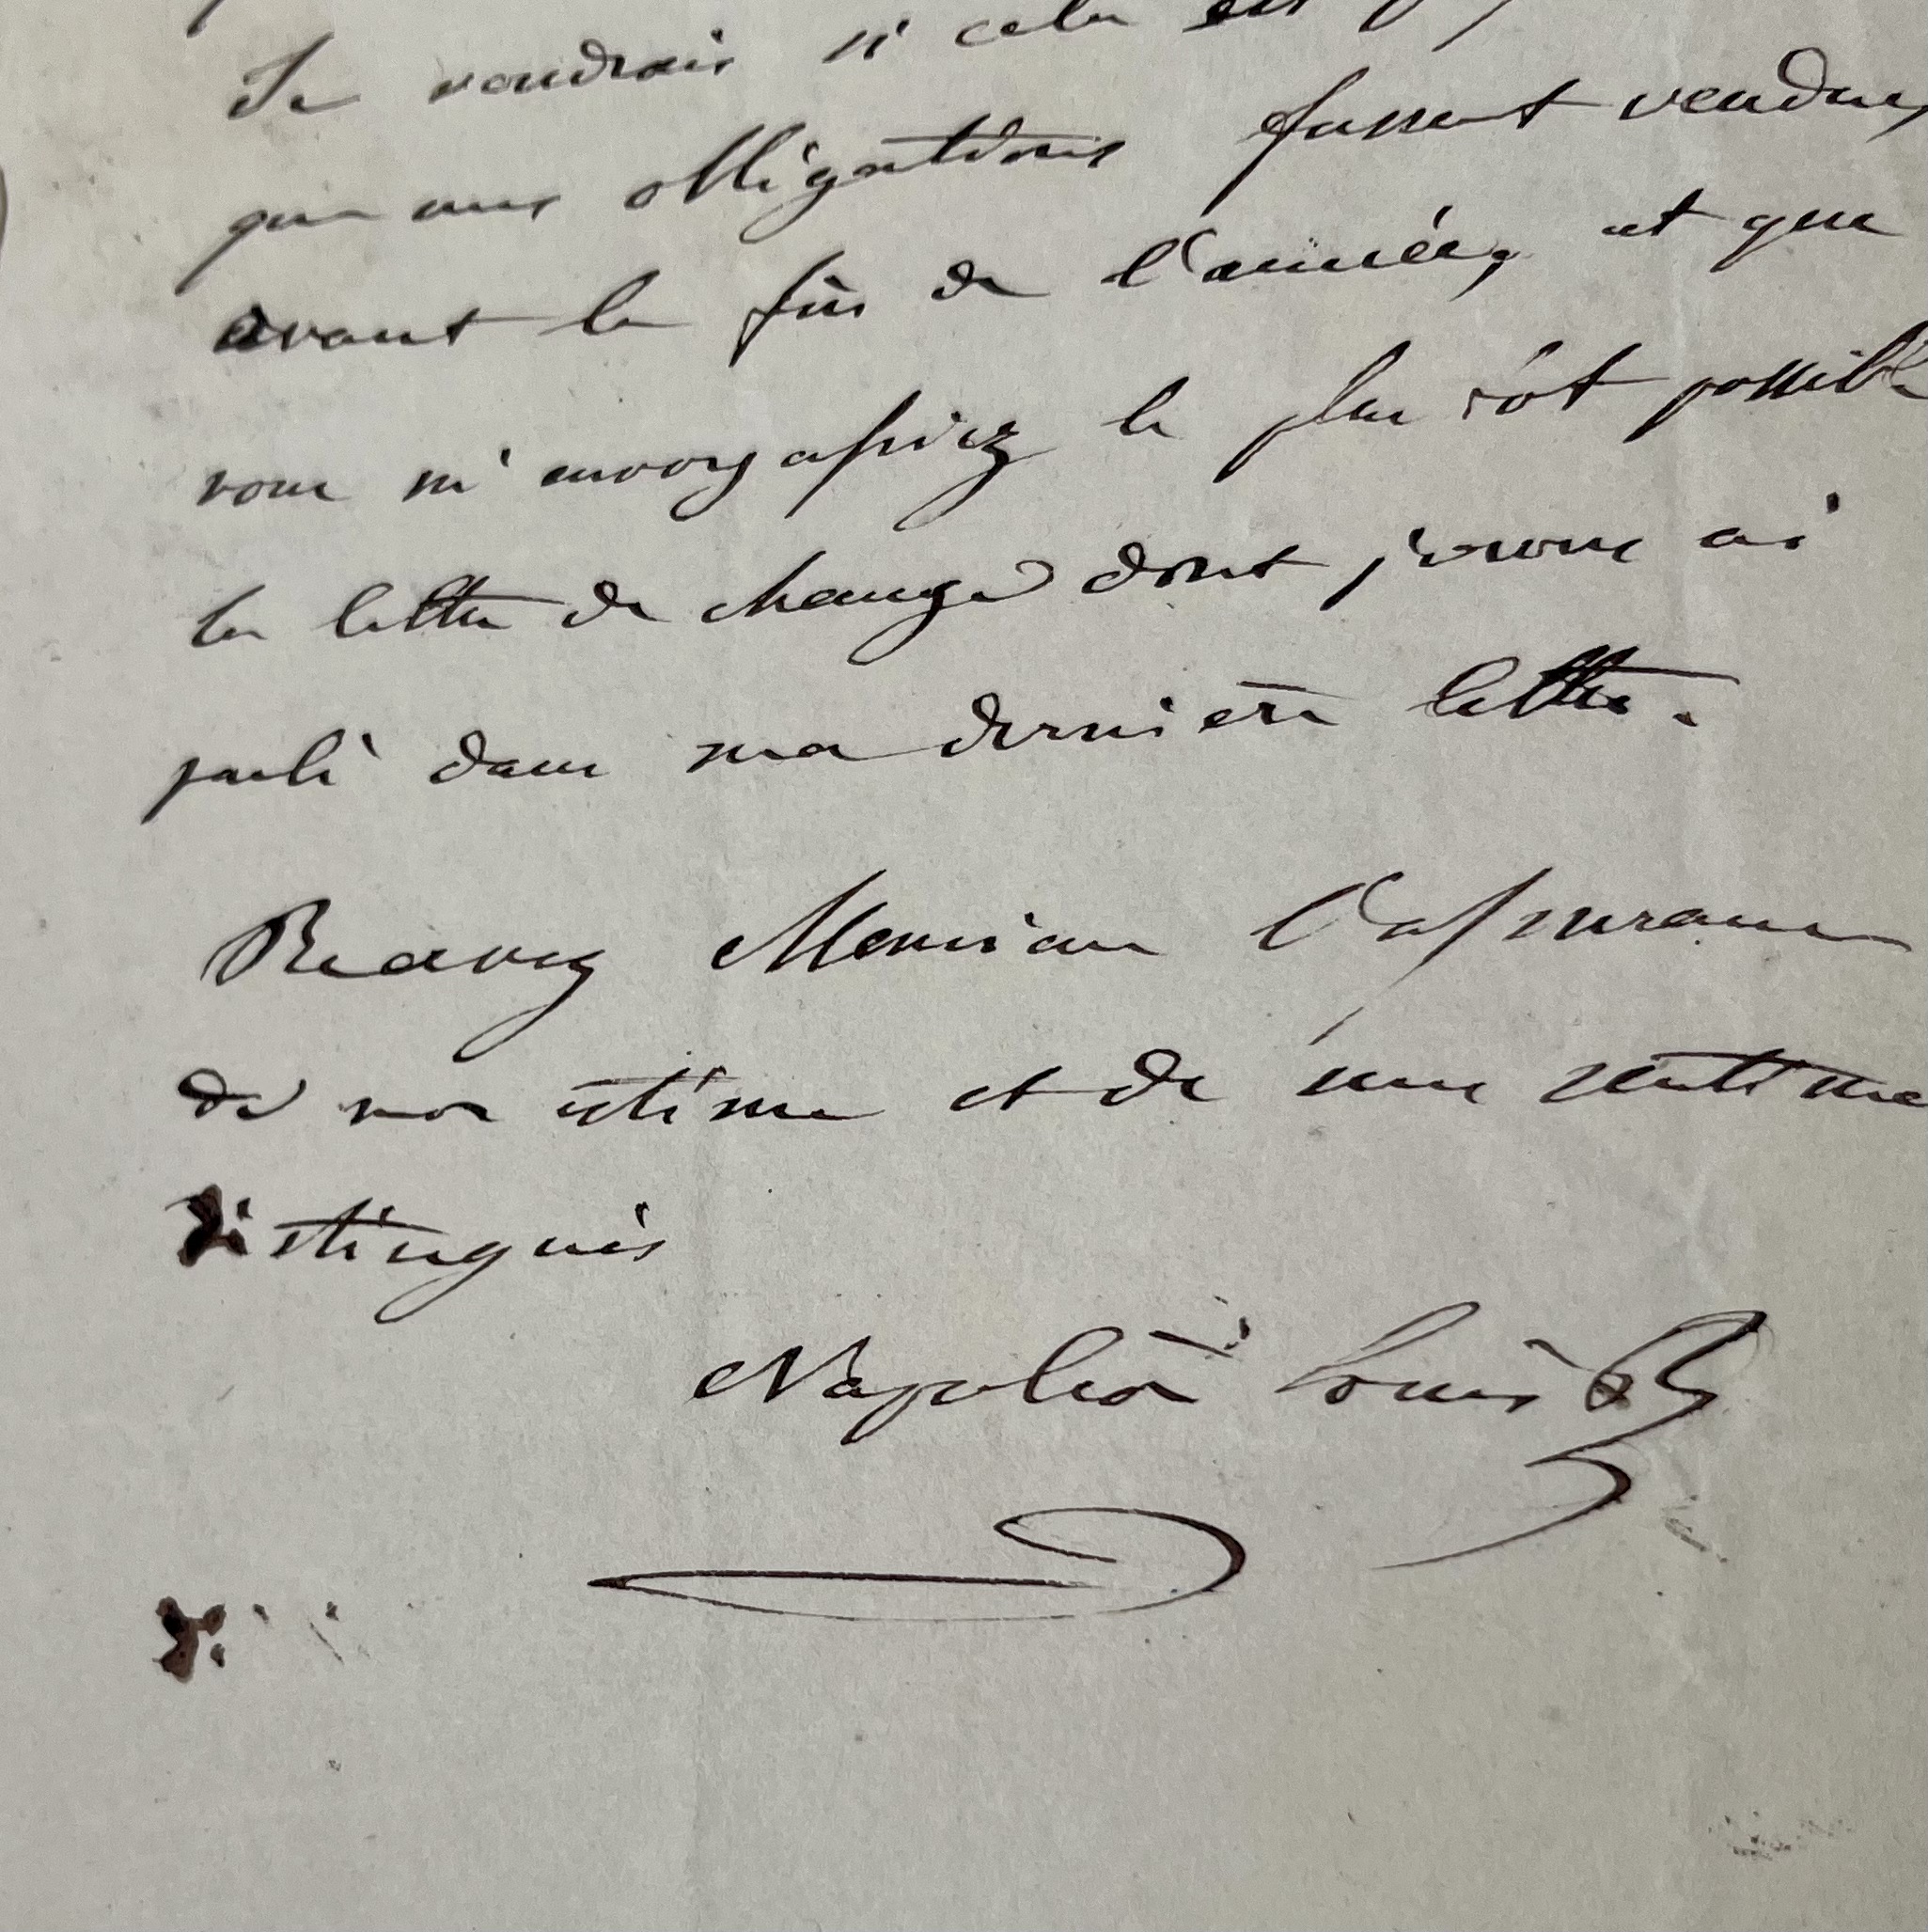 Je voudrais si cela est
que mes obligations fussent vendues
avant la fin de l'année, et que
vous m'envoyassiez le plus tôt possible
la lettre de change dont je vous ai
parlé dans ma dernière lettre.
Recevez Monsieur l'assurance
de mon estime et de mes sentime
distingués
Napoléon Louis B